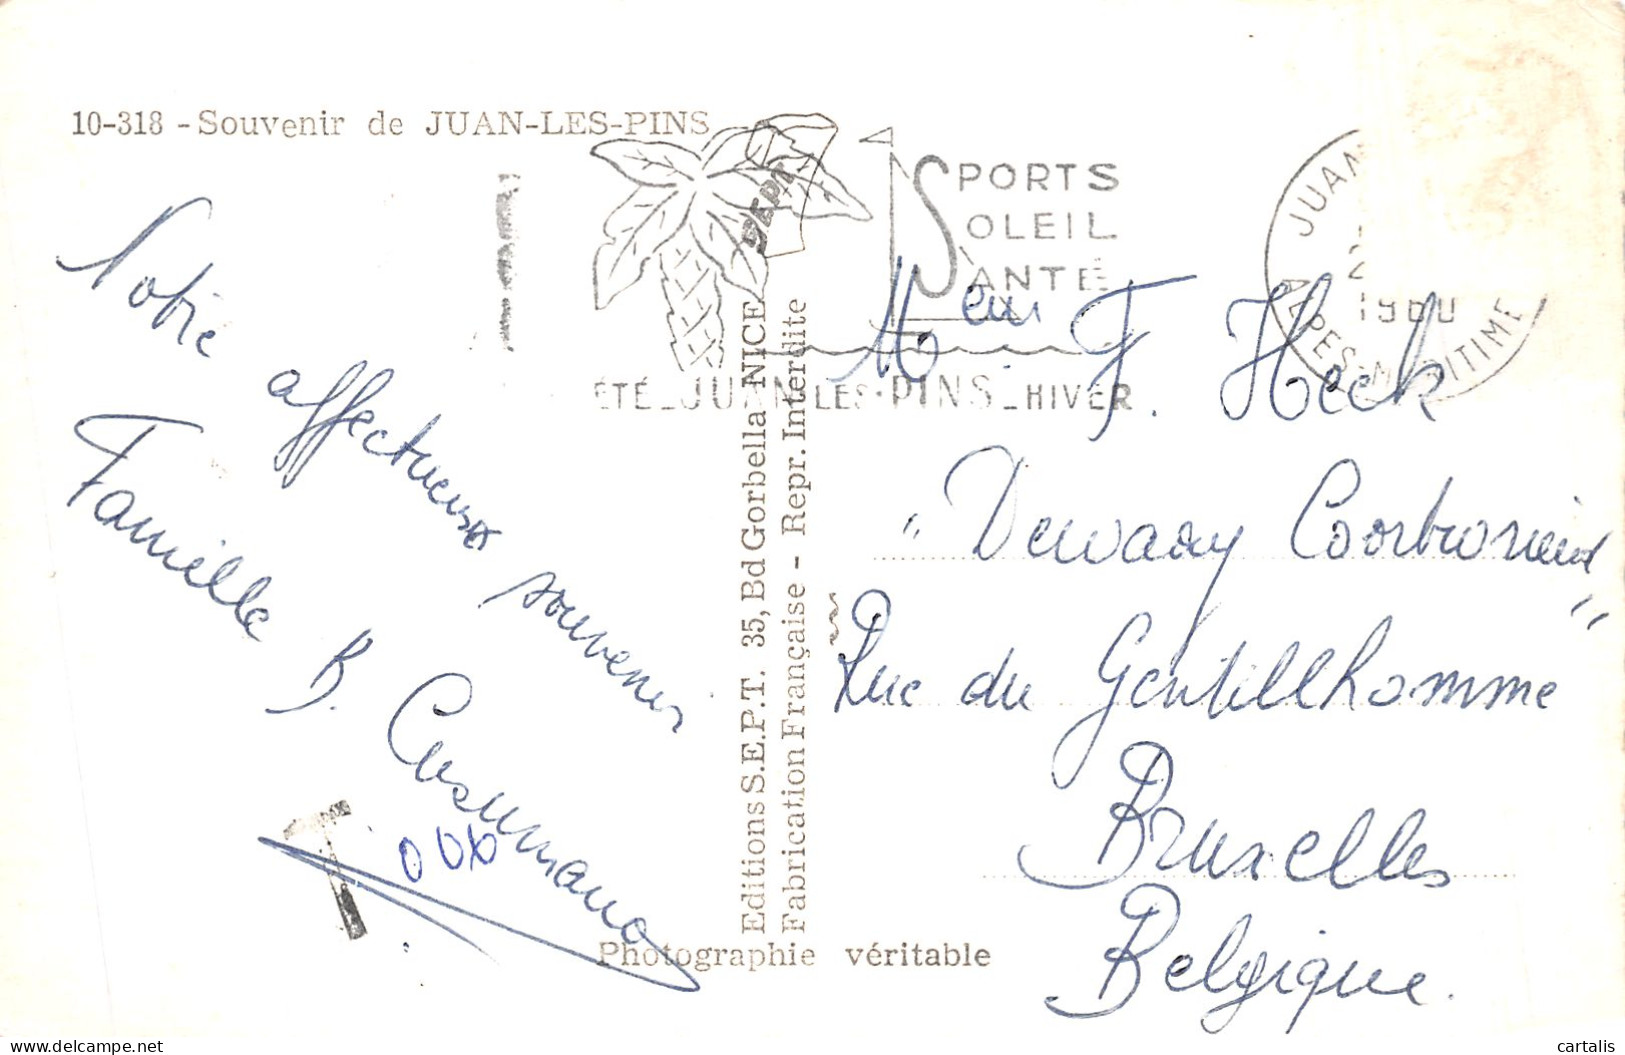 10-318 - Souvenir de JUAN-LES-PINS
SPORTS
SOLEIL
SANTÉ
ÉTÉ - JUAN-LES-PINS - HIVER
JUAN
ALPES-MARITIME
1960
SEPT
Editions S.E.P.T. 35, Bd Gorbella NICE
Fabrication Française - Repr. Interdite
Notre affectueux souvenir
Famille B. Cusumano
T
Meur F. Hoeck
" Dewaay
"
Rue du Gentillhomme
Bruxelles
Belgique.
Photographie véritable
www.delcampe.net
cartalis